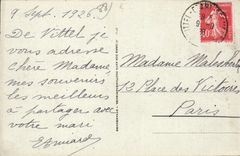 9 Sept. 1926.
De Vittel je
vous adresse
chère Madame
mes souvenirs
les meilleurs
à partager avec
votre mari
Madame
13 Place des Victoires
Paris